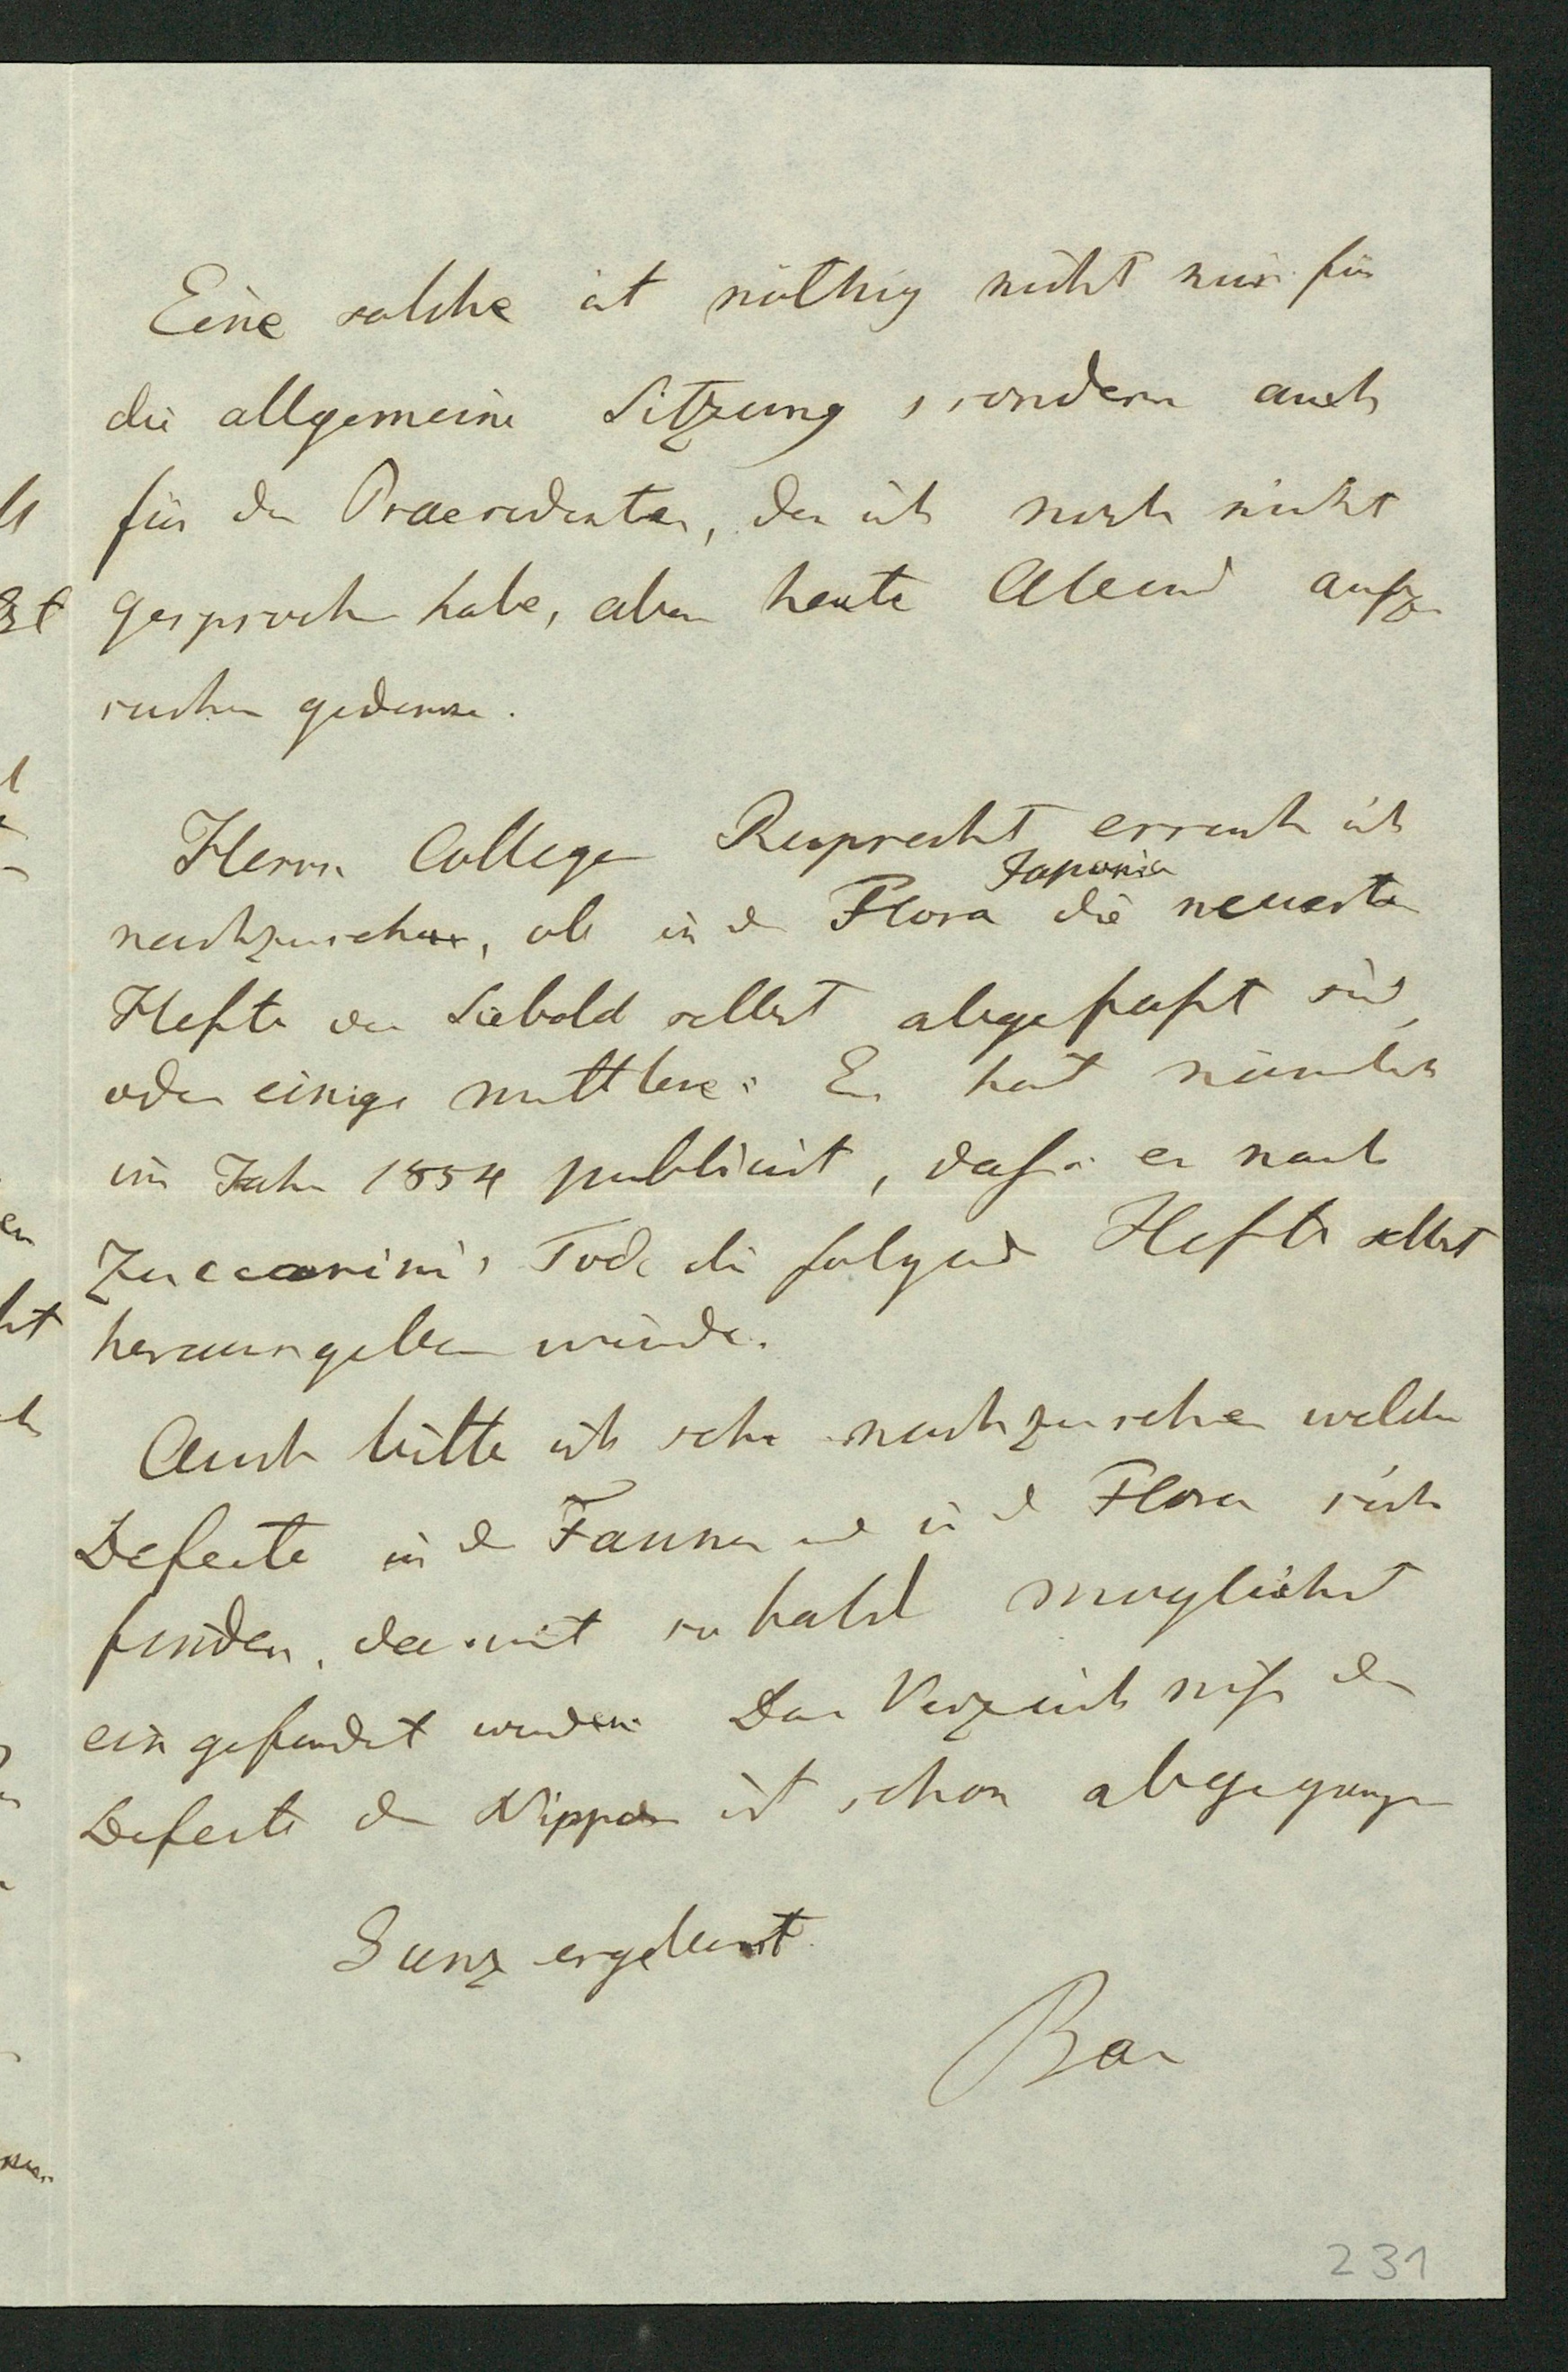 Eine solche ist nöthig nicht nur für
die allgemeine Sitzung, sondern auch
für den Praesidenten, den ich noch nicht
gesprochen habe, aber heute Abend aufzu
suchen gedenke.
Herrn Collegen Ruprecht ersuche ich
nachzusehen, ob in der Flora Japonica die neuesten
Hefte von Siebold selbst abgefaßt sind,
oder einige mittlere. Er hat nämlich
im Jahr 1854 publicirt, daß er nach
Zuccarini's Tode die folgenden Hefte selbst
herausgeben würde.
Auch bitte ich sehr nachzusehen welche
Defecte in der Fauna und in der Flora sich
finden, damit so bald möglichst
eingesendet werden. Das Verzeichniß der
Defecte des Nippon ist schon abgegangen
Ganz ergebenst
Baer
231